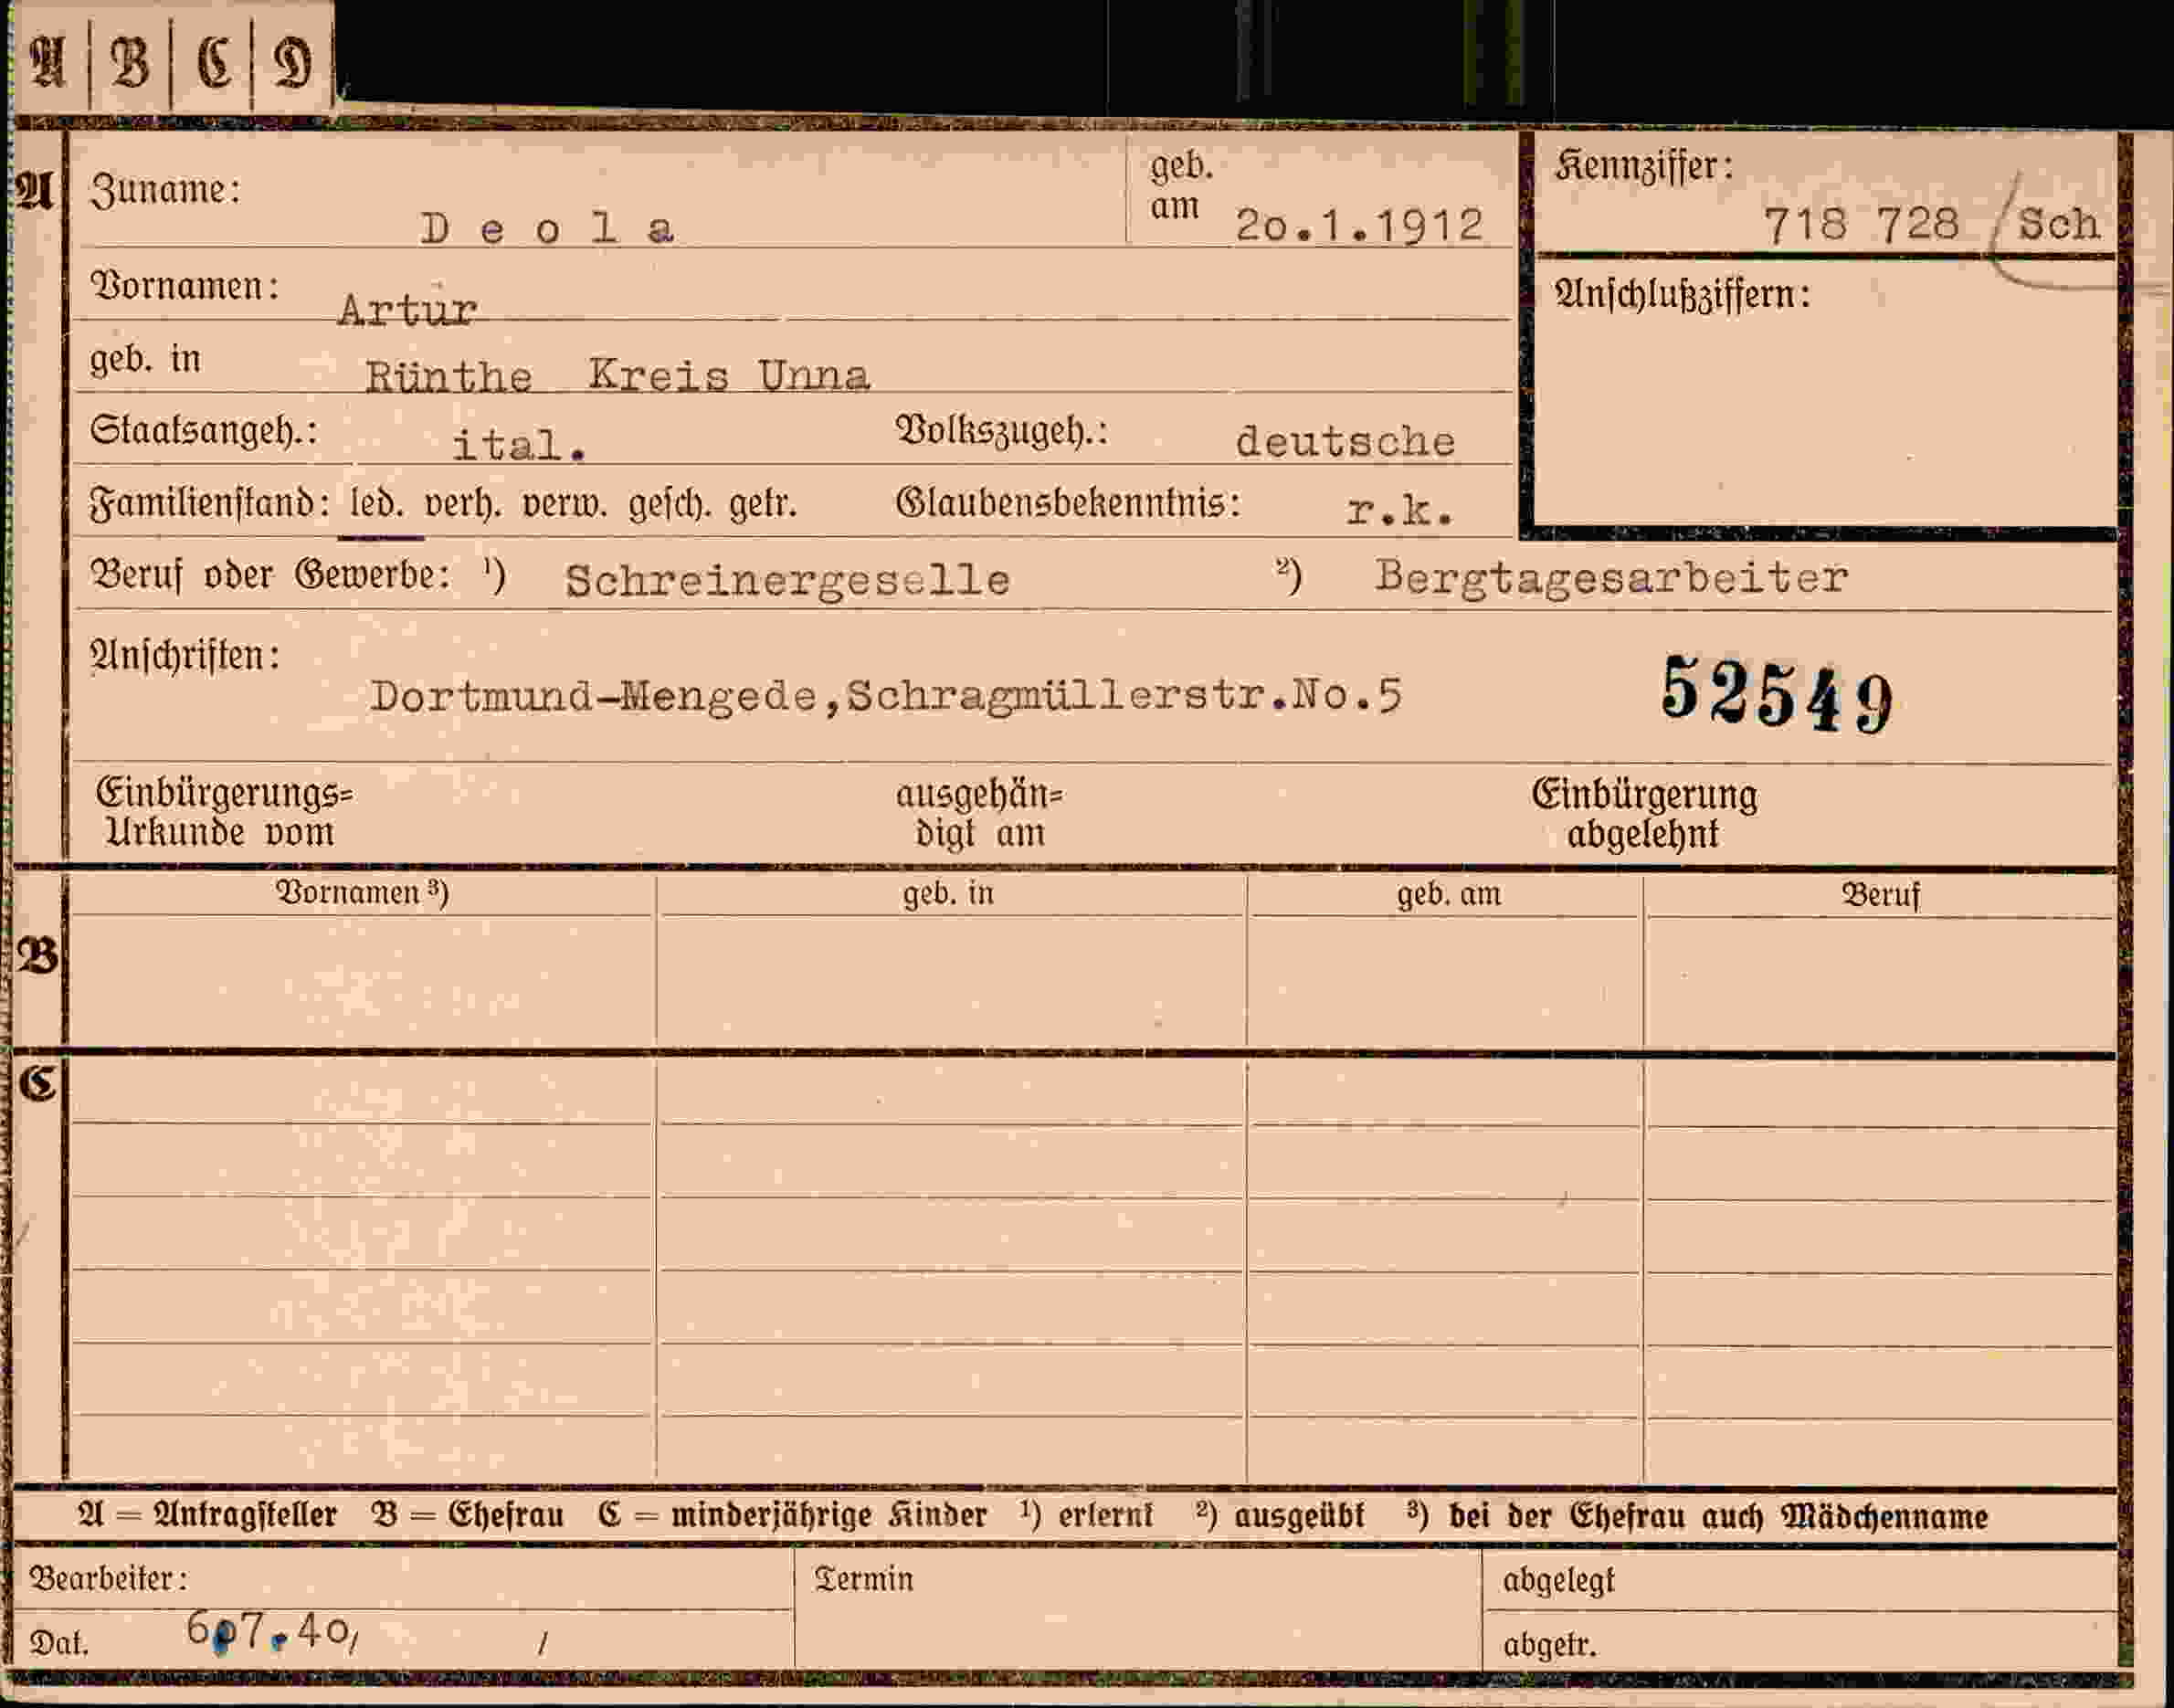 A | B | C | D
A
Zuname: Deola
geb. am 20.1.1912
Kennziffer: 718 728 /Sch
Vornamen: Artur
Anschlußziffern:
geb. in Rünthe Kreis Unna
Staatsangeh.: ital. Volkszugeh.: deutsche
Familienstand: led. verh. verw. gesch. getr. Glaubensbekenntnis: r.k.
Beruf oder Gewerbe: ¹) Schreinergeselle ²) Bergtagesarbeiter
Anschriften:
Dortmund-Mengede,Schragmüllerstr.No.5 52549
Einbürgerungs= ausgehän= Einbürgerung
Urkunde vom digt am abgelehnt
Vornamen ³) geb. in geb. am Beruf
B
C
A = Antragsteller B = Ehefrau C = minderjährige Kinder ¹) erlernt ²) ausgeübt ³) bei der Ehefrau auch Mädchenname
Bearbeiter: Termin abgelegt
Dat. 6.7.40/ / abgetr.